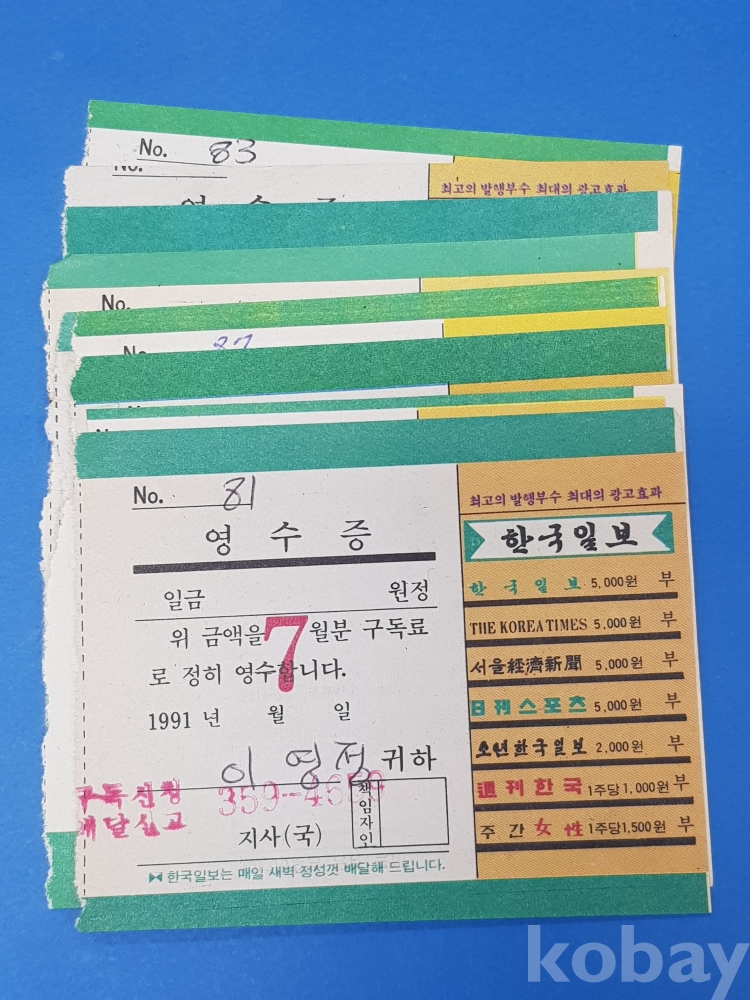 No. 83
No.
영 수 증
최고의 발행부수 최대의 광고효과
No.
No. 87
No. 81
영 수 증
일금 원정
위 금액을 7 월분 구독료
로 정히 영수합니다.
1991 년 월 일
이 영정 귀하
구독신청 359-4
배달신고
책임자인
지사(국)
⧓ 한국일보는 매일 새벽 정성껏 배달해 드립니다.
최고의 발행부수 최대의 광고효과
한국일보
한국일보 5,000원 부
THE KOREA TIMES 5,000원 부
서울經濟新聞 5,000원 부
日刊스포츠 5,000원 부
소년한국일보 2,000원 부
週刊한국 1주당 1,000원 부
주간女性 1주당 1,500원 부
kobay